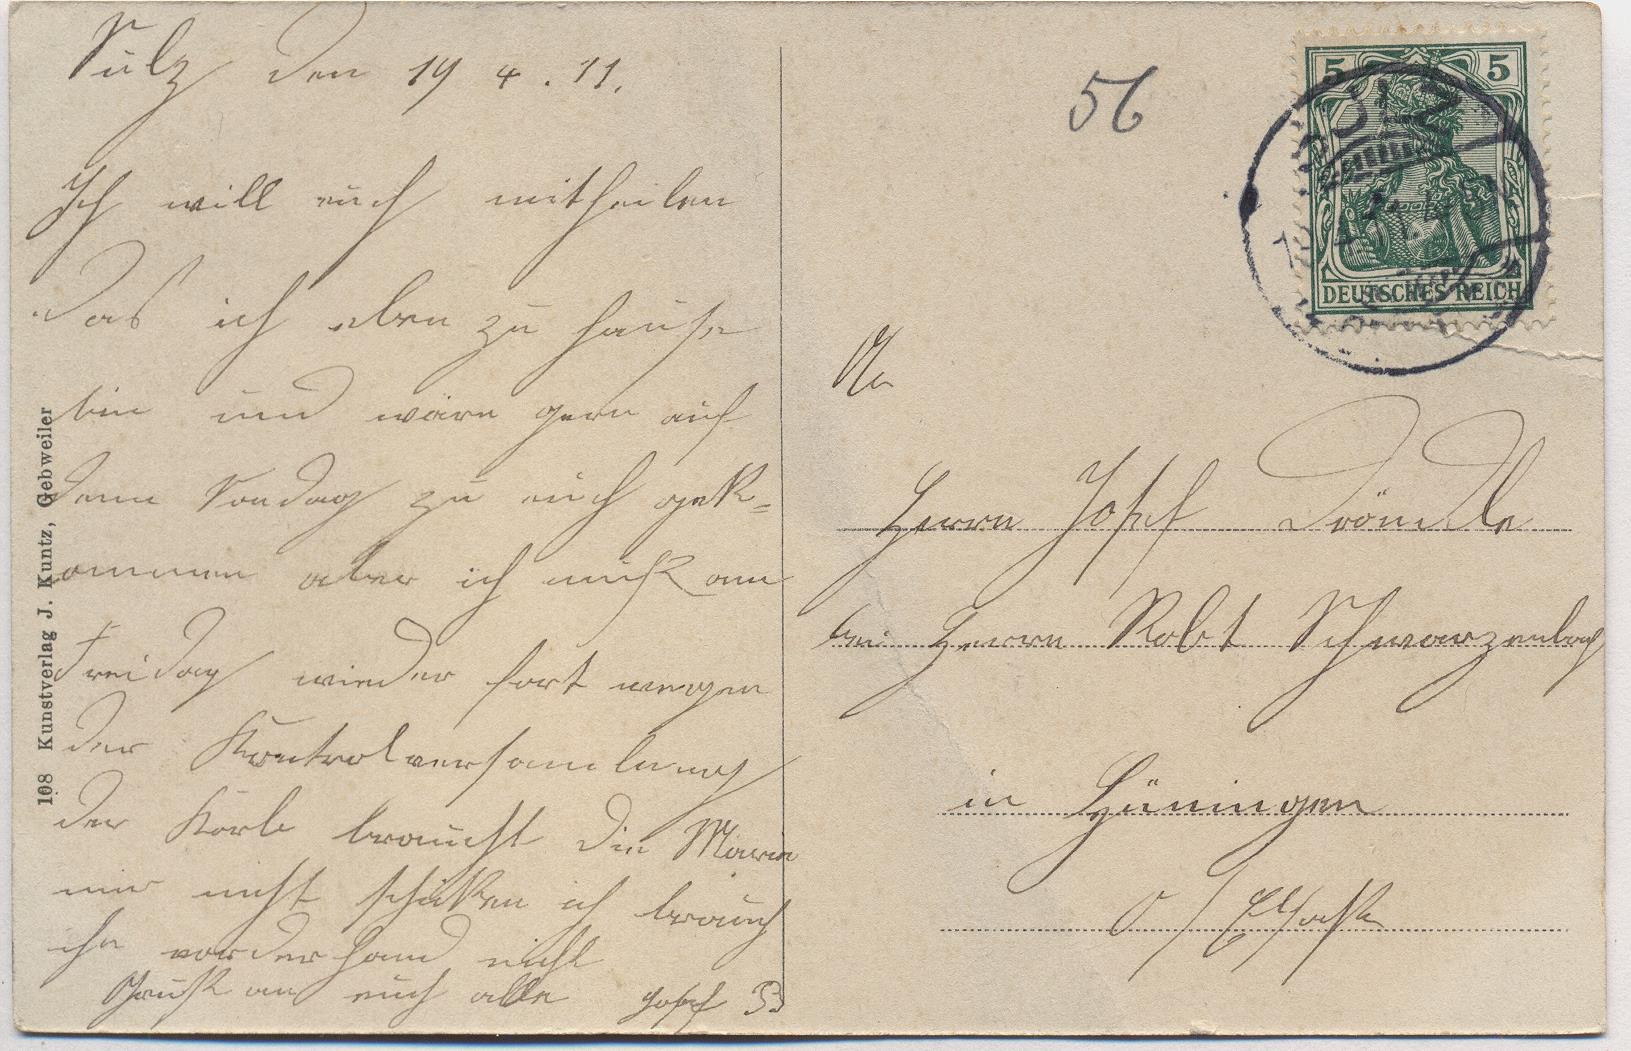 Sülz den 19 4. 11.
Ich will euch mitheilen
das ich eben zu hause
bin und wäre gern auf
denn Sondag zu euch gek=
ommen aber ich muß am
Freidag wieder fort wegen
der Kontrolversamlung
der Korb braucht die Marie
mir nicht schiken ich brauch
ihn vorderhand nicht
Gruß an euch alle Josef
108 Kunstverlag J. Kuntz, Gebweiler
56
5 5
DEUTSCHES REICH
SULZ
An
Herrn Josef Tröndle
bei Herrn Robt Schwarzenbach
in Hüningen
o/Elsaß